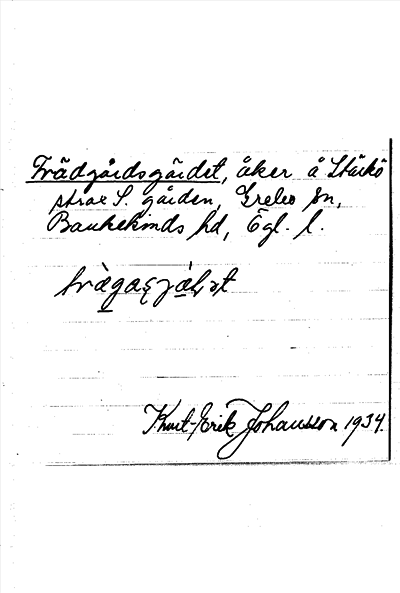 Trädgårdsgärdet, åker å Stärkö
strax S. gården, Grebo sn,
Bankekinds hd, Ögl. l.
Knut-Erik Johansson 1934.